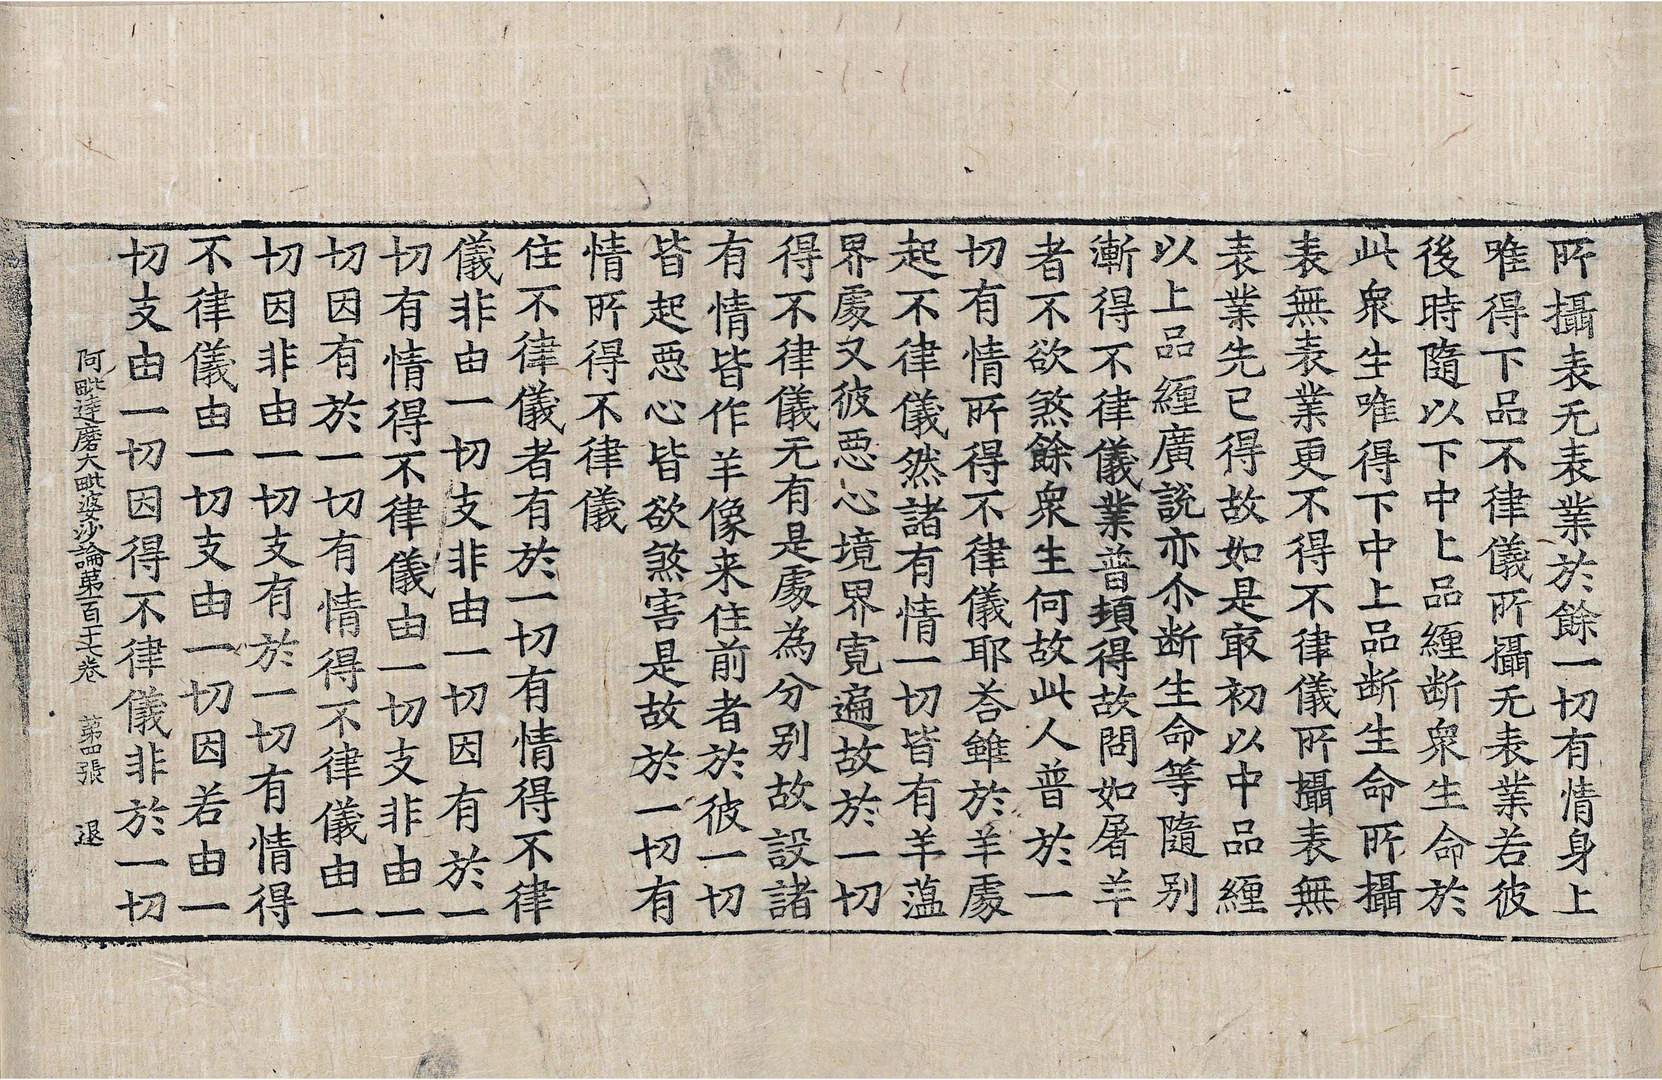 所攝表无表業於餘一切有情身上
唯得下品不律儀所攝无表業若彼
後時隨以下中上品纏断衆生命於
此衆生唯得下中上品断生命所攝
表無表業更不得不律儀所攝表無
表業先已得故如是㝡初以中品纏
以上品纏廣說亦尒断生命等隨别
漸得不律儀業普頓得故問如屠羊
者不欲煞餘衆生何故此人普於一
切有情所得不律儀耶荅雖於羊處
起不律儀然諸有情一切皆有羊蕰
界處又彼惡心境界寬遍故於一切
得不律儀无有是處為分別故設諸
有情皆作羊像来住前者於彼一切
皆起惡心皆欲煞害是故於一切有
情所得不律儀
住不律儀者有於一切有情得不律
儀非由一切支非由一切因有於一
切有情得不律儀由一切支非由一
切因有於一切有情得不律儀由一
切因非由一切支有於一切有情得
不律儀由一切支由一切因若由一
切支由一切因得不律儀非於一切
阿毗達磨大毗婆沙論第一百一十七卷 第四張 退